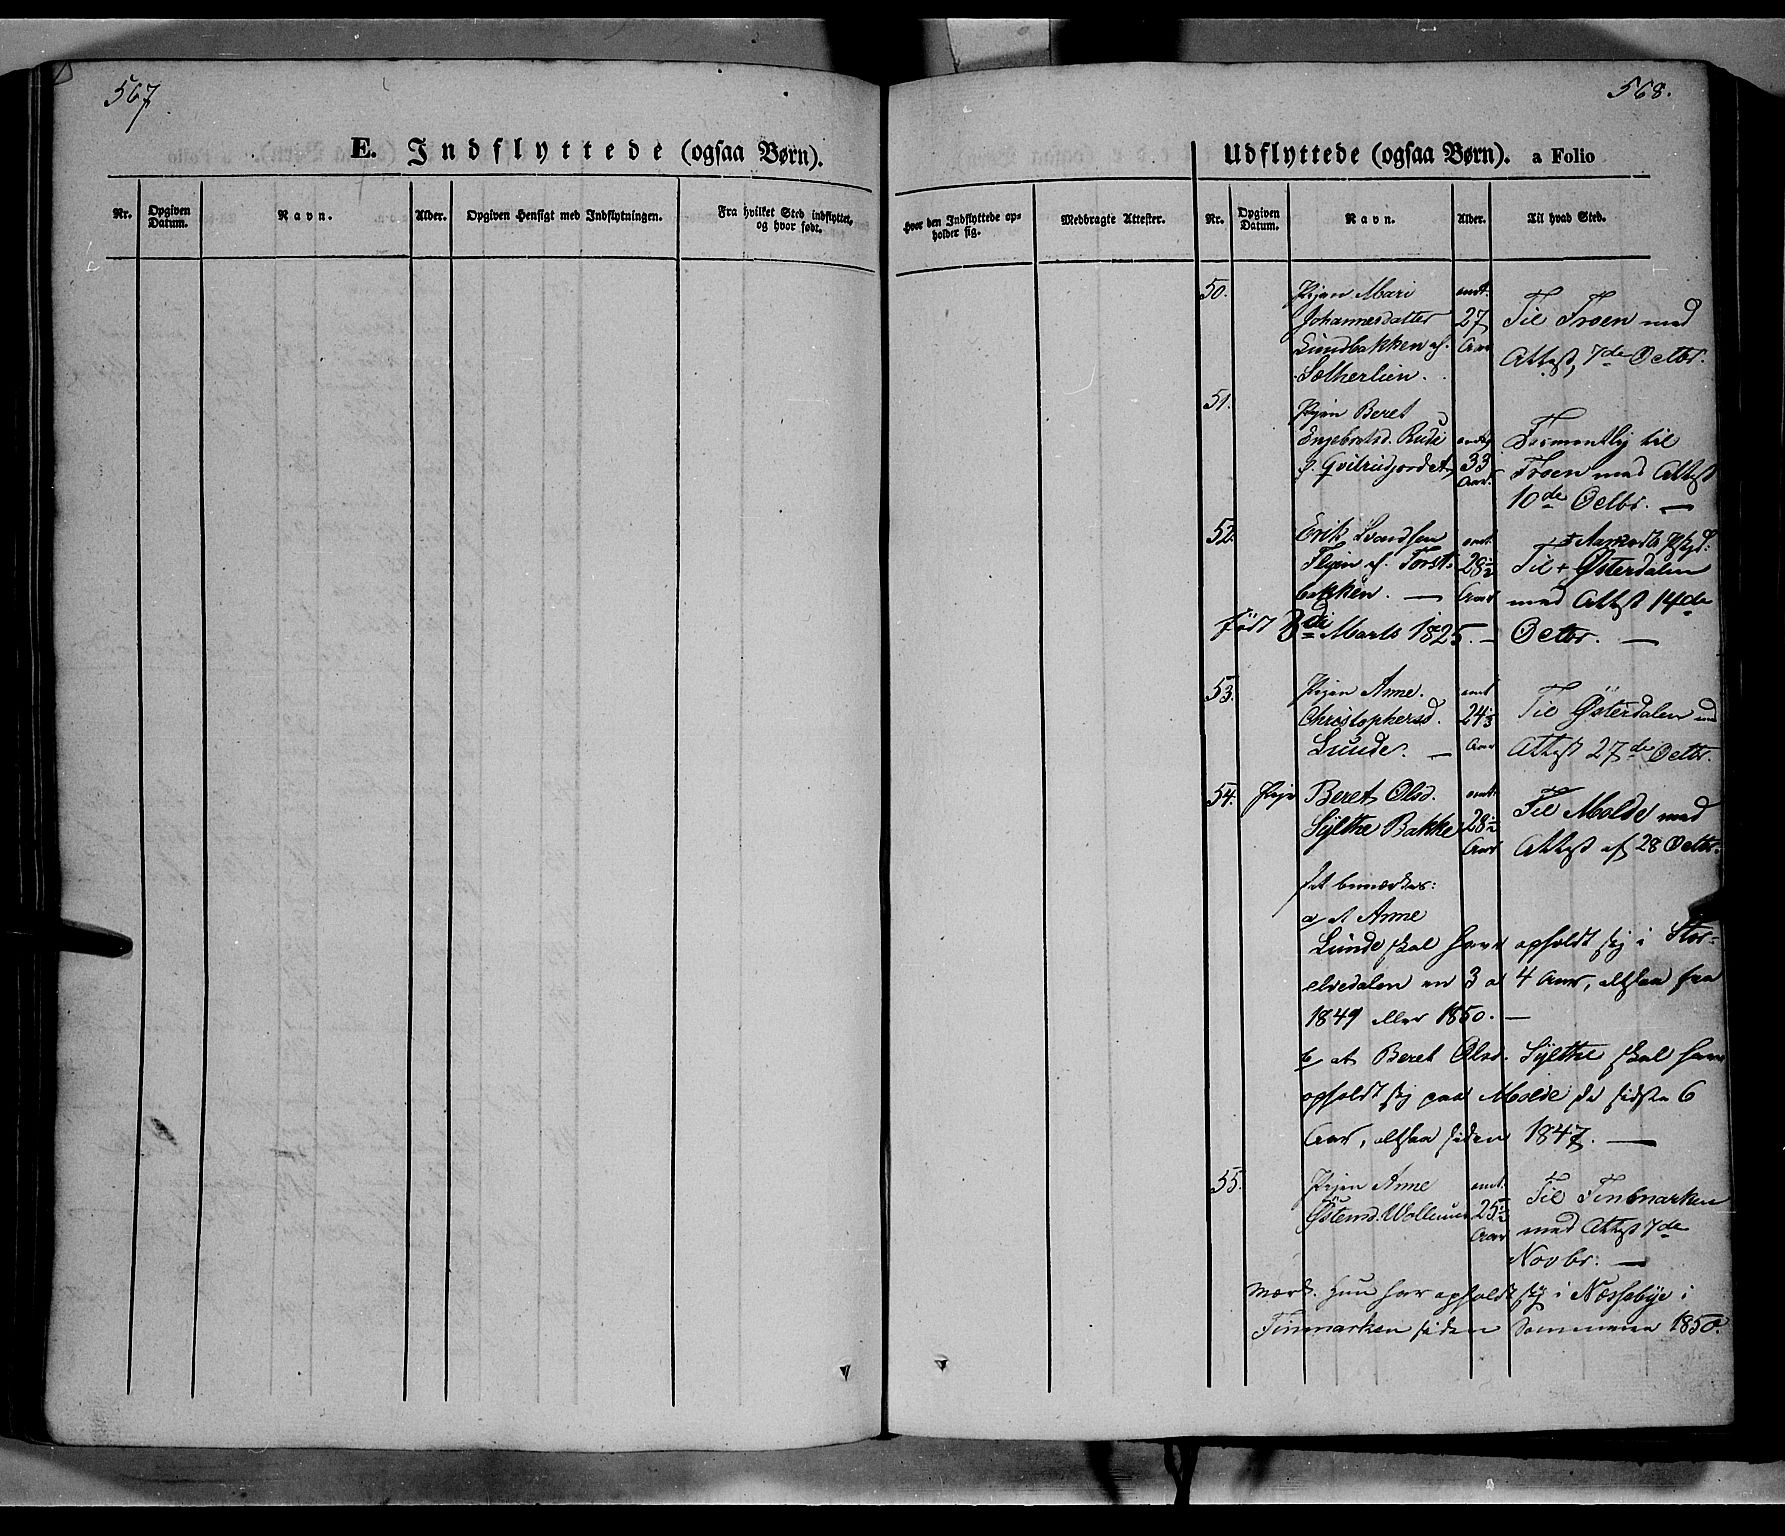 567.
568.
E. Indflyttede (ogsaa Børn).
Udflyttede (ogsaa Børn). a Folio
Nr.
Opgiven Datum.
Navn.
Alder.
Opgiven Hensigt med Indflytningen.
Fra hvilket Sted indflyttet, og hvor født.
Hvor den Indflyttede opholder sig.
Medbragte Attester.
Nr.
Opgiven Datum.
Navn.
Alder.
Til hvad Sted.
50. Pigen Mari omt.
Johannesdatter 27 Til Froen med
Lundbakken af. Aar Attest, 7de Octbr.
Sætherlien.
51. Pigen Beret
Engebretsd. Rude omtr. Formentlig til
33 Froen med Attest
Aar. 10de Octbr. —
52. Erik omt.
af. Torst- 28½ Til + Østerdalen
bakken. — Aar med Attest 14de
født Marts 1825. — Octbr. —
53. Pigen Anne. omt
Christophersd. 24⅓ Til Østerdalen med
Lunde. — Aar Attest 27de Octbr.
54. Pige Beret Olsd. omt. Til Molde med
Sylthe Bakke 28½ Aar Attest af 28 Octbr.
Det bemærkes:
a at Anne
Lunde skal have opholdt sig i Stor-
elvedalen en 3 a 4 Aar, altsaa fra
1849 eller 1850. —
b at Beret Olsd. Sylthe skal have
opholdt sig paa Molde de sidste 6
Aar, altsaa siden 1847. —
55. Pigen Anne omt. Til Finmarken
Østensd. 25½ med Attest 7de
Aar Novbr. —
Mærk. Hun har opholdt sig i Næssebye i
Finmarken siden Sommeren 1850.